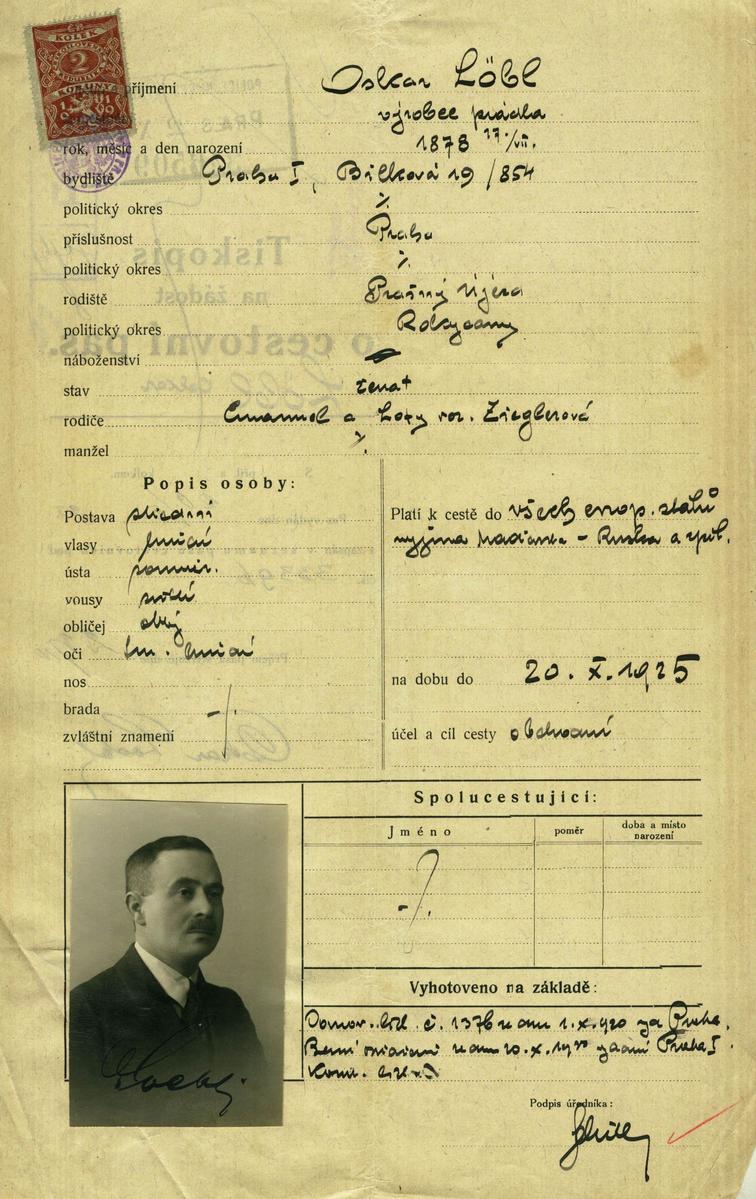 KOLEK
2
KORUNY
příjmení Oskar Löbl
výrobce prádla
rok, měsíc a den narození 1878 17./VII.
bydliště Praha I, Bílkova 19/854
politický okres %
příslušnost Praha
politický okres %
rodiště Prašný Újezd
politický okres Rokycany
náboženství
stav ženat
rodiče Emanuel a Loty roz. Zieglerová
manžel %
Popis osoby:
Postava střední
vlasy hnědé
ústa souměr.
vousy
obličej oblý
oči tm. hnědé
nos
brada
zvláštní znamení -/.
Platí k cestě do všech evrop. států
vyjma Maďarska - Ruska a
na dobu do 20. X. 1925
účel a cíl cesty obchodní
Spolucestující:
Jméno poměr doba a místo narození
-/.
Vyhotoveno na základě:
Domov. list č. 1376 ze dne 1. X. 1920 za Praha.
Berní ze dne 20. X. Praha I
Podpis úředníka: